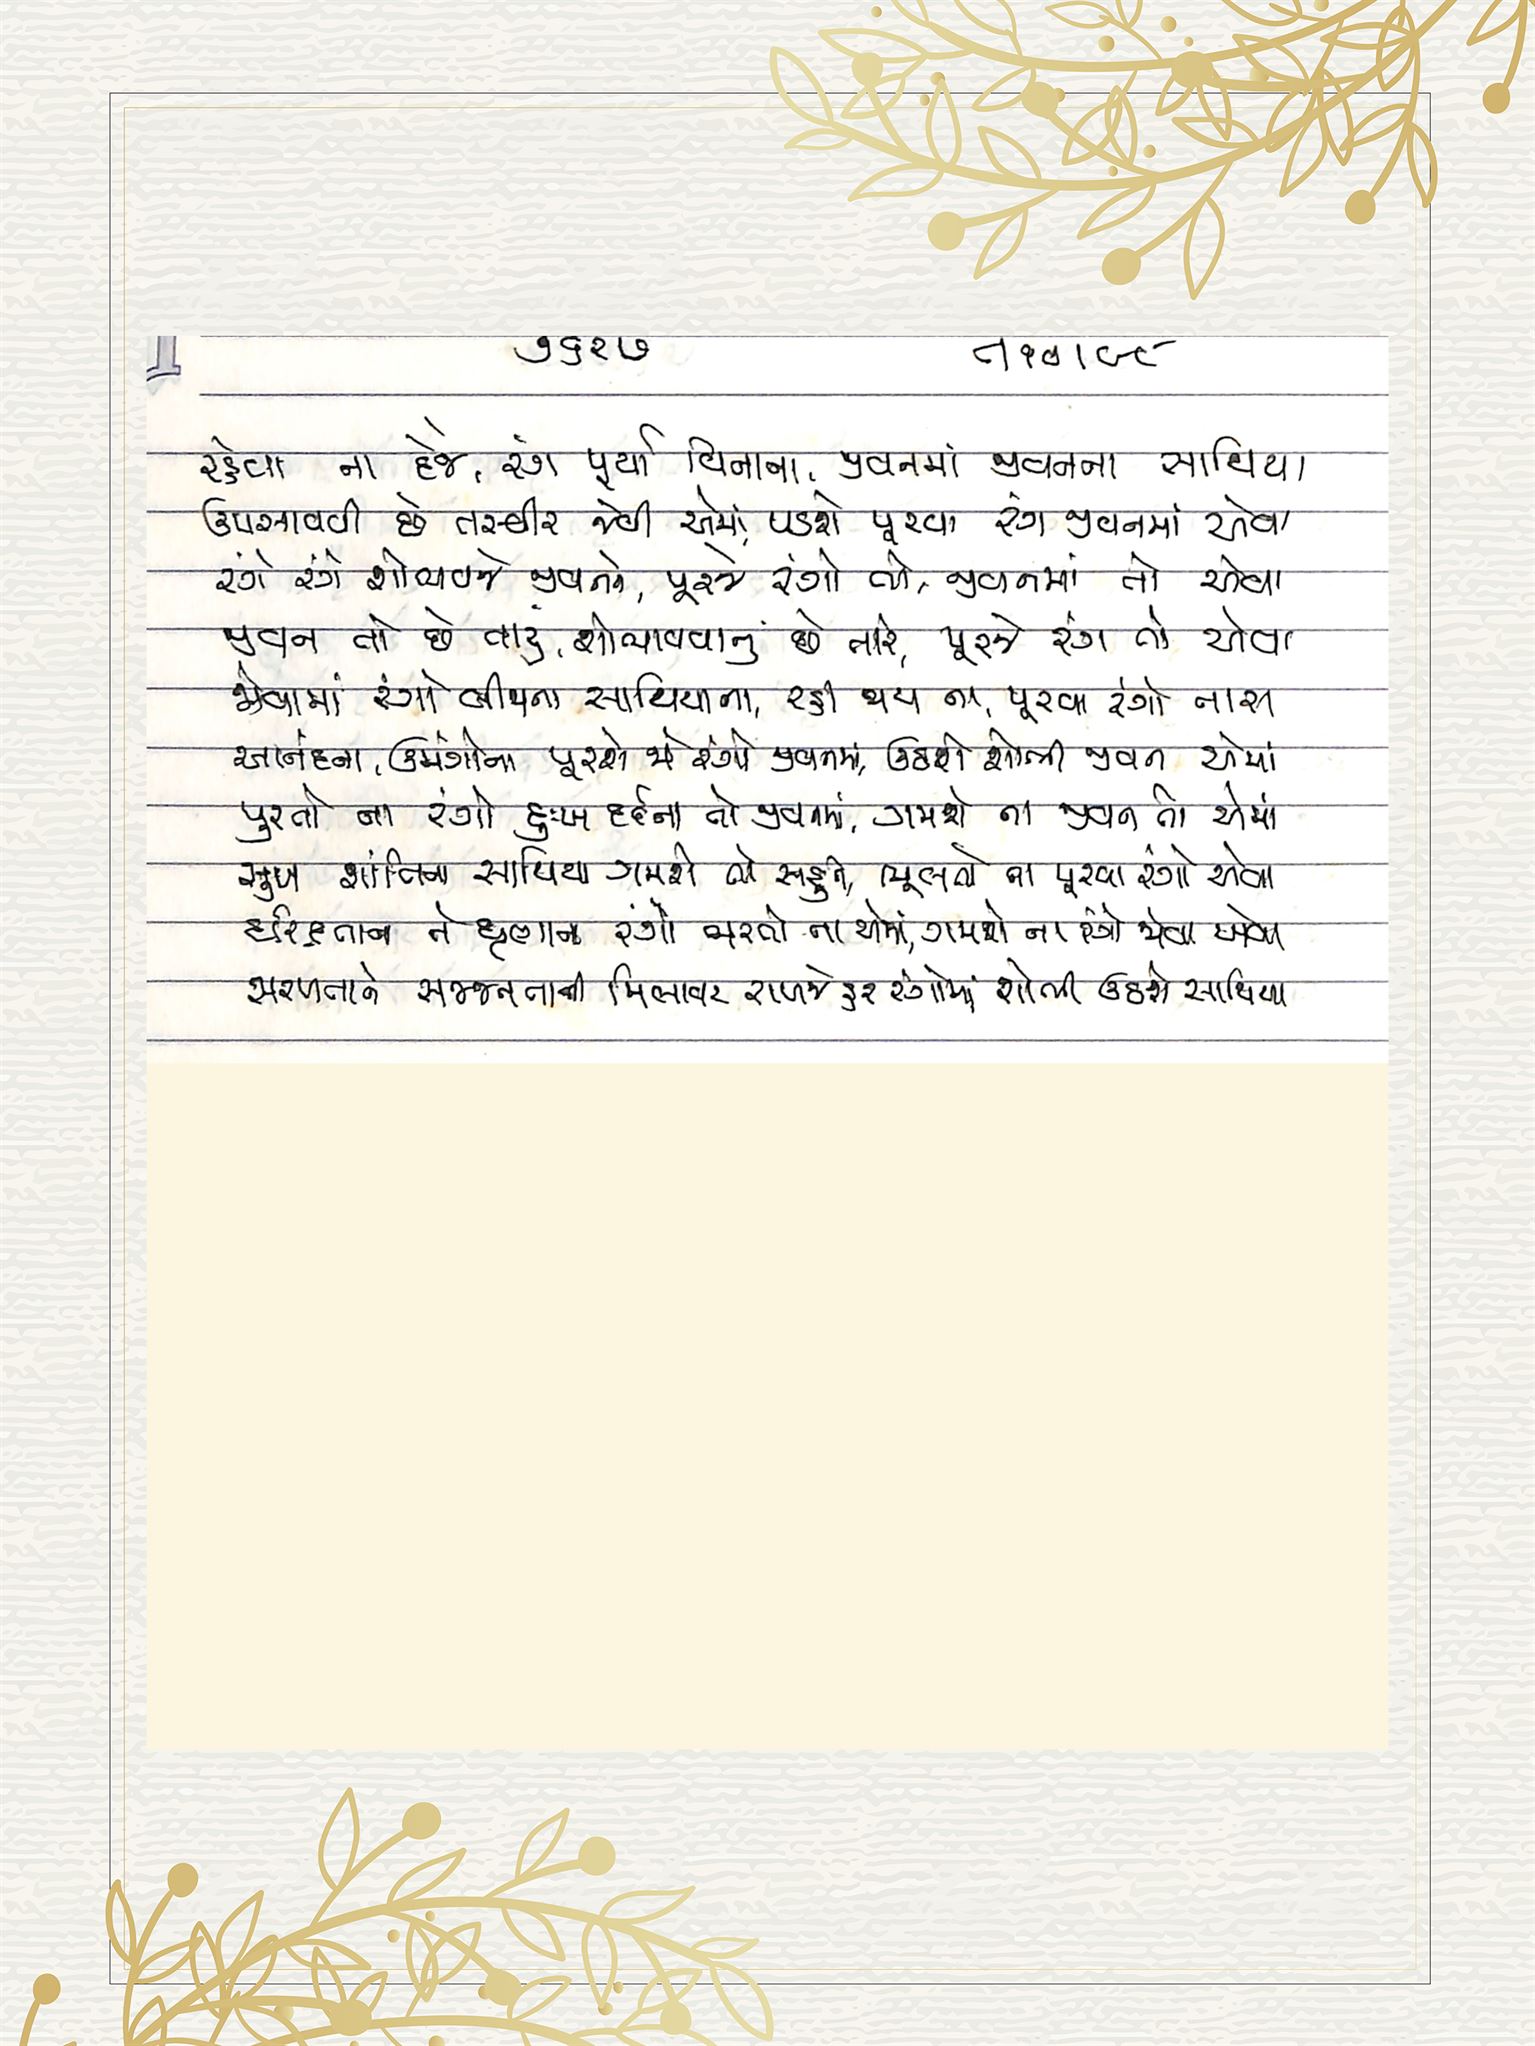 ૭૬૨૭
રહેવા ના દેજે, રંગ પૂર્યા વિનાના, જીવનમાં જીવનના સાથિયા
ઉપસાવવી છે તસ્વીર જેવી એમાં, પડશે પૂરવા રંગ જીવનમાં એવા
રંગે રંગે શોભાવજે જીવનને, પૂરજે રંગો તો, જીવનમાં તો એવા
જીવન તો છે તારું, શોભાવવાનું છે તારે, પૂરજે રંગ તો એવા
જોવામાં રંગો બીજના સાથિયાના, રહી જાય ના, પૂરવા રંગો તારા
આનંદના, ઉમંગોના પૂરશે જે રંગો જીવનમાં, ઉઠશે શોભી જીવન એમાં
પુરતો ના રંગો દુઃખ દર્દના તો જીવનમાં, ગમશે ના જીવન તો એમાં
સુખ શાંતિના સાથિયા ગમશે તો સહુને, ભૂલતો ના પૂરવા રંગો એવા
ને રંગો ભરતો ના એમાં, ગમશે ના રંગો એવા
સરળતાને સજ્જનતાની મિલાવટ રાખજે હર રંગોમાં, શોભી ઉઠશે સાથિયા